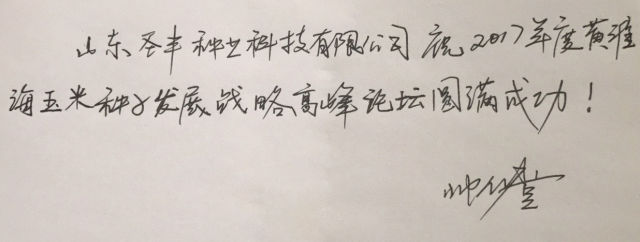 山东圣丰种业科技有限公司祝2017年度黄淮
海玉米种子发展战略高峰论坛圆满成功！